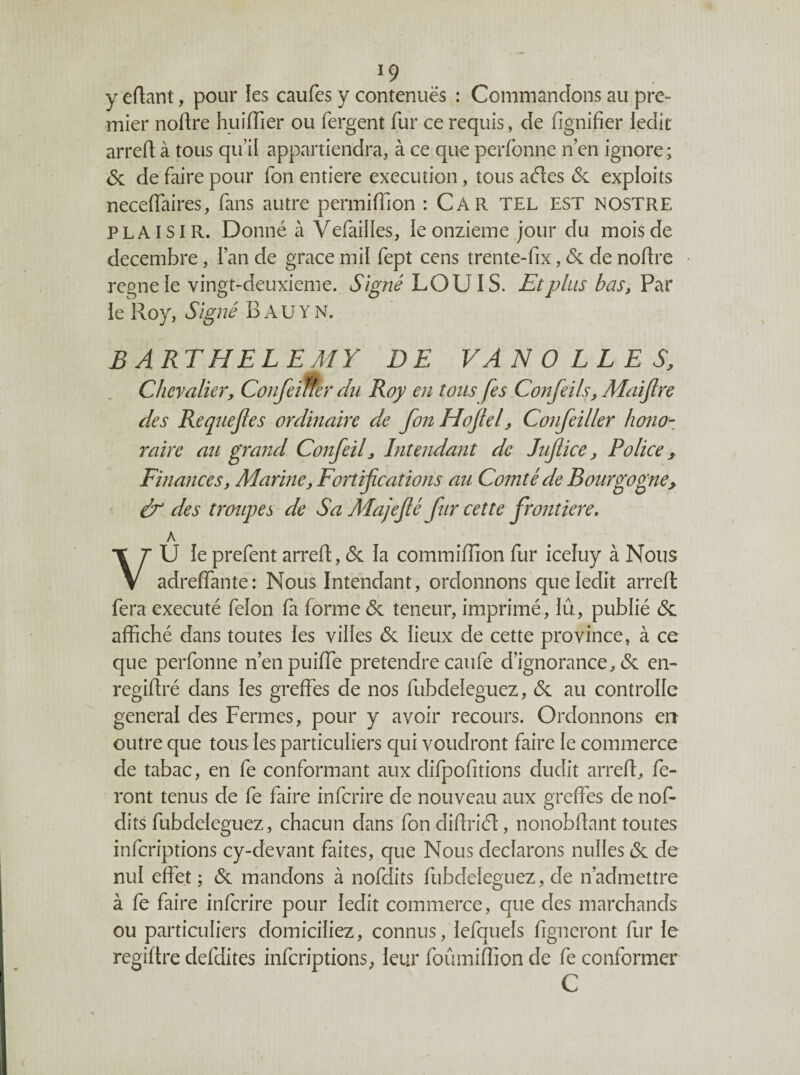 19
y eſtant, pour les cauſes y contenuës : Commandons au pre-
mier noſtre huiſſier ou ſergent ſur ce requis, de ſignifier ledit
arreſt à tous qu'il appartiendra, à ce que perſonne n'en ignore;
& de faire pour ſon entiere execution, tous actes & exploits
neceſſaires, ſans autre permiſſion : CAR TEL EST NOSTRE
PLAISIR. Donné à Veſailles, le onzieme jour du mois de
decembre, l'an de grace mil ſept cens trente-ſix, & de noſtre
regne le vingt-deuxieme. Signé LOUIS. Et plus bas, Par
le Roy, Signé BAUYN.
BARTHELEMY DE VANOLLES,
Chevalier, Conſeiller du Roy en tous ſes Conſeils, Maiſtre
des Requeſtes ordinaire de ſon Hoſtel, Conſeiller hono-
raire au grand Conſeil, Intendant de Juſtice, Police,
Finances, Marine, Fortifications au Comté de Bourgogne,
& des troupes de Sa Majeſté ſur cette frontiere.
VÛ le preſent arreſt, & la commiſſion ſur iceluy à Nous
adreſſante: Nous Intendant, ordonnons que ledit arreſt
ſera executé ſelon ſa forme & teneur, imprimé, lû, publié &
affiché dans toutes les villes & lieux de cette province, à ce
que perſonne n'en puiſſe pretendre cauſe d'ignorance, & en-
regiſtré dans les greffes de nos ſubdeleguez, & au controlle
general des Fermes, pour y avoir recours. Ordonnons en
outre que tous les particuliers qui voudront faire le commerce
de tabac, en ſe conformant aux diſpoſitions dudit arreſt, ſe-
ront tenus de ſe faire inſcrire de nouveau aux greffes de noſ-
dits ſubdeleguez, chacun dans ſon diſtrict, nonobſtant toutes
inſcriptions cy-devant faites, que Nous declarons nulles & de
nul effet ; & mandons à noſdits ſubdeleguez, de n'admettre
à ſe faire inſcrire pour ledit commerce, que des marchands
ou particuliers domiciliez, connus, leſquels ſigneront ſur le
regiſtre deſdites inſcriptions, leur ſoûmiſſion de ſe conformer
C